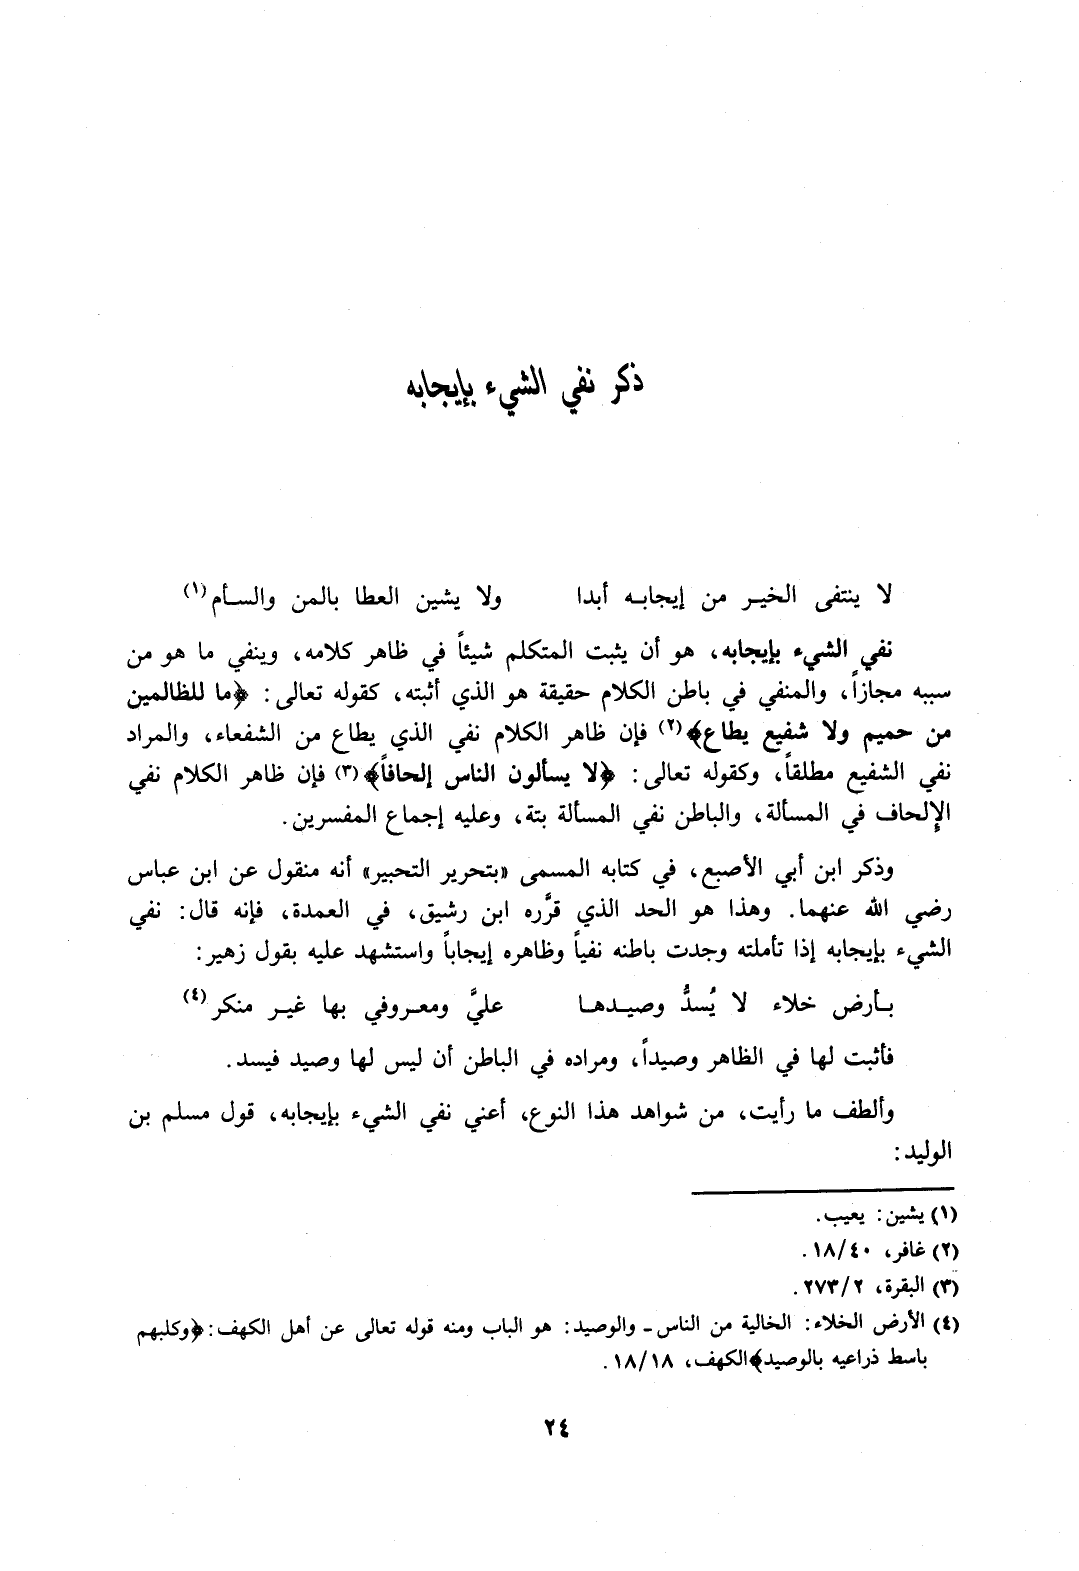 ذكر نفي الشيء بإيجابه
لا ينتفى الخيـر من إيجابـه أبدا ولا يشين العطا بالمن والسـأم(١)
نفي الشيء بإيجابه، هو أن يثبت المتكلم شيئاً في ظاهر كلامه، وينفي ما هو من
سببه مجازاً، والمنفي في باطن الكلام حقيقة هو الذي أثبته، كقوله تعالى: ﴿ما للظالمين
من حميم ولا شفيع يطاع﴾(٢) فإن ظاهر الكلام نفي الذي يطاع من الشفعاء، والمراد
نفي الشفيع مطلقاً، وكقوله تعالى: ﴿لا يسألون الناس إلحافاً﴾(٣) فإن ظاهر الكلام نفي
الإلحاف في المسألة، والباطن نفي المسألة بتة، وعليه إجماع المفسرين.
وذكر ابن أبي الأصبع، في كتابه المسمى «بتحرير التحبير» أنه منقول عن ابن عباس
رضي الله عنهما. وهذا هو الحد الذي قرَّره ابن رشيق، في العمدة، فإنه قال: نفي
الشيء بإيجابه إذا تأملته وجدت باطنه نفياً وظاهره إيجاباً واستشهد عليه بقول زهير:
بـأرض خلاء لا يُسدُّ وصيـدهـا عليَّ ومعـروفي بها غيـر منكر(٤)
فأثبت لها في الظاهر وصيداً، ومراده في الباطن أن ليس لها وصيد فيسد.
وألطف ما رأيت، من شواهد هذا النوع، أعني نفي الشيء بإيجابه، قول مسلم بن
الوليد:
(١) يشين: يعيب.
(٢) غافر، ١٨/٤٠.
(٣) البقرة، ٢٧٣/٢.
(٤) الأرض الخلاء: الخالية من الناس ـ والوصيد: هو الباب ومنه قوله تعالى عن أهل الكهف: ﴿وكلبهم
باسط ذراعيه بالوصيد﴾ الكهف، ١٨/١٨.
٢٤